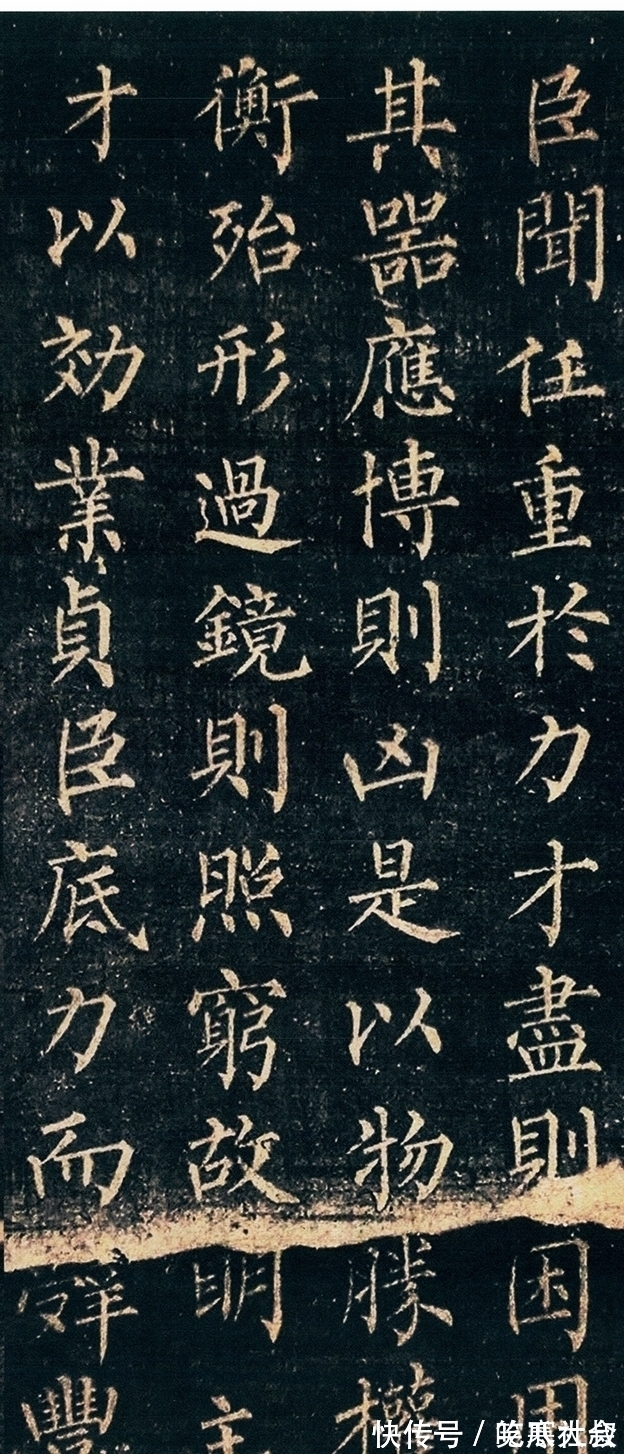 臣聞任重於力才盡則困用
其器應博則凶是以物勝權
衡殆形過鏡則照窮故明主
才以効業貞臣底力而辤豐
快传号 /